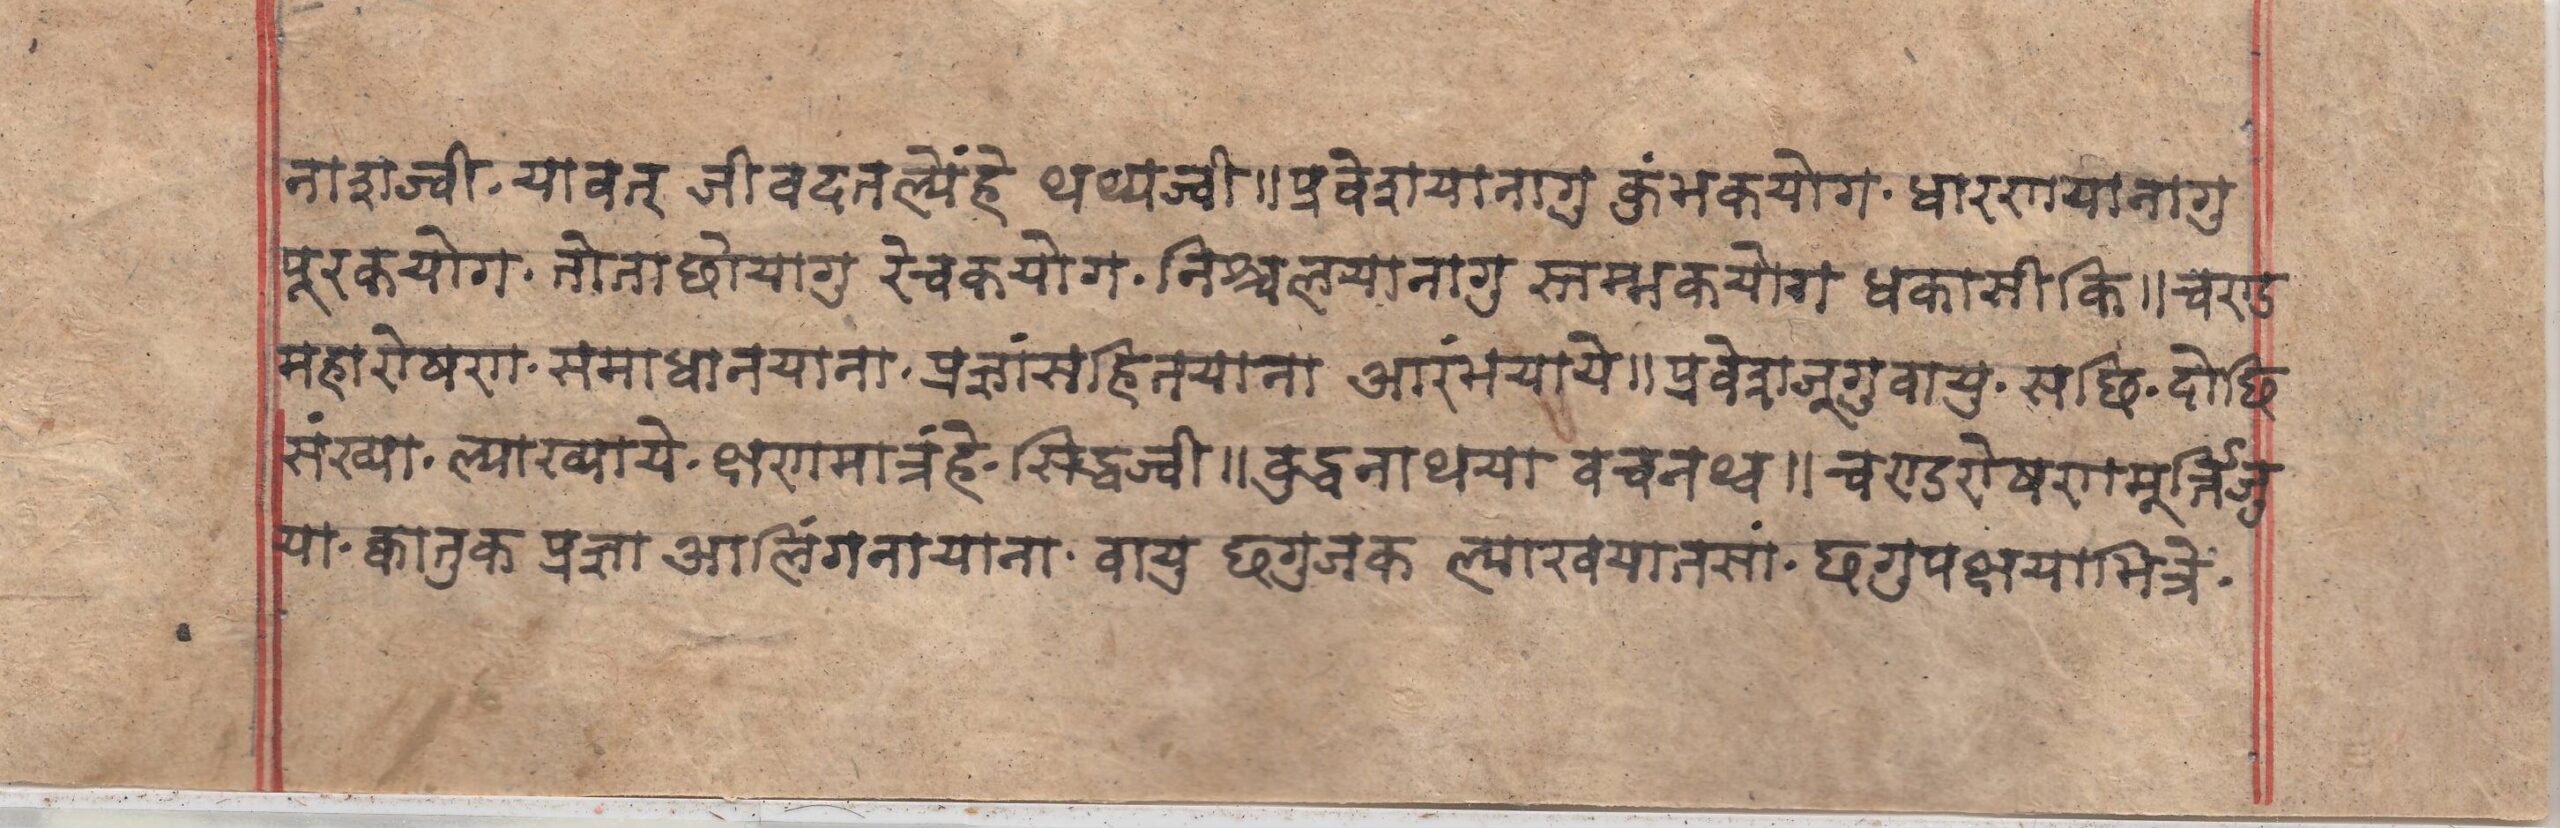 नाशज्वी. यावत् जीवदतल्येंहे थथ्यज्वी॥ प्रवेशयानागु कुंभकयोग. धारणयानागु
पूरकयोग. तोताछोयागु रेचकयोग. निश्चलयानागु स्तम्भकयोग धकासीकि॥ चण्ड
महारोषण. समाधानयाना. प्रज्ञांसहितयाना आरंभयाये॥ प्रवेशजूगुवायु. सछि. दोछि
संख्या. ल्याखयाये. क्षणमात्रंहे. सिद्धज्वी॥ बुद्धनाथया वचनथ्व॥ चण्डरोषणमूर्त्तिजु
या. क्वातुक प्रज्ञा आलिंगनायाना. वायु छगुजक ल्याखयातसां. छगुपक्षयाभित्रें.